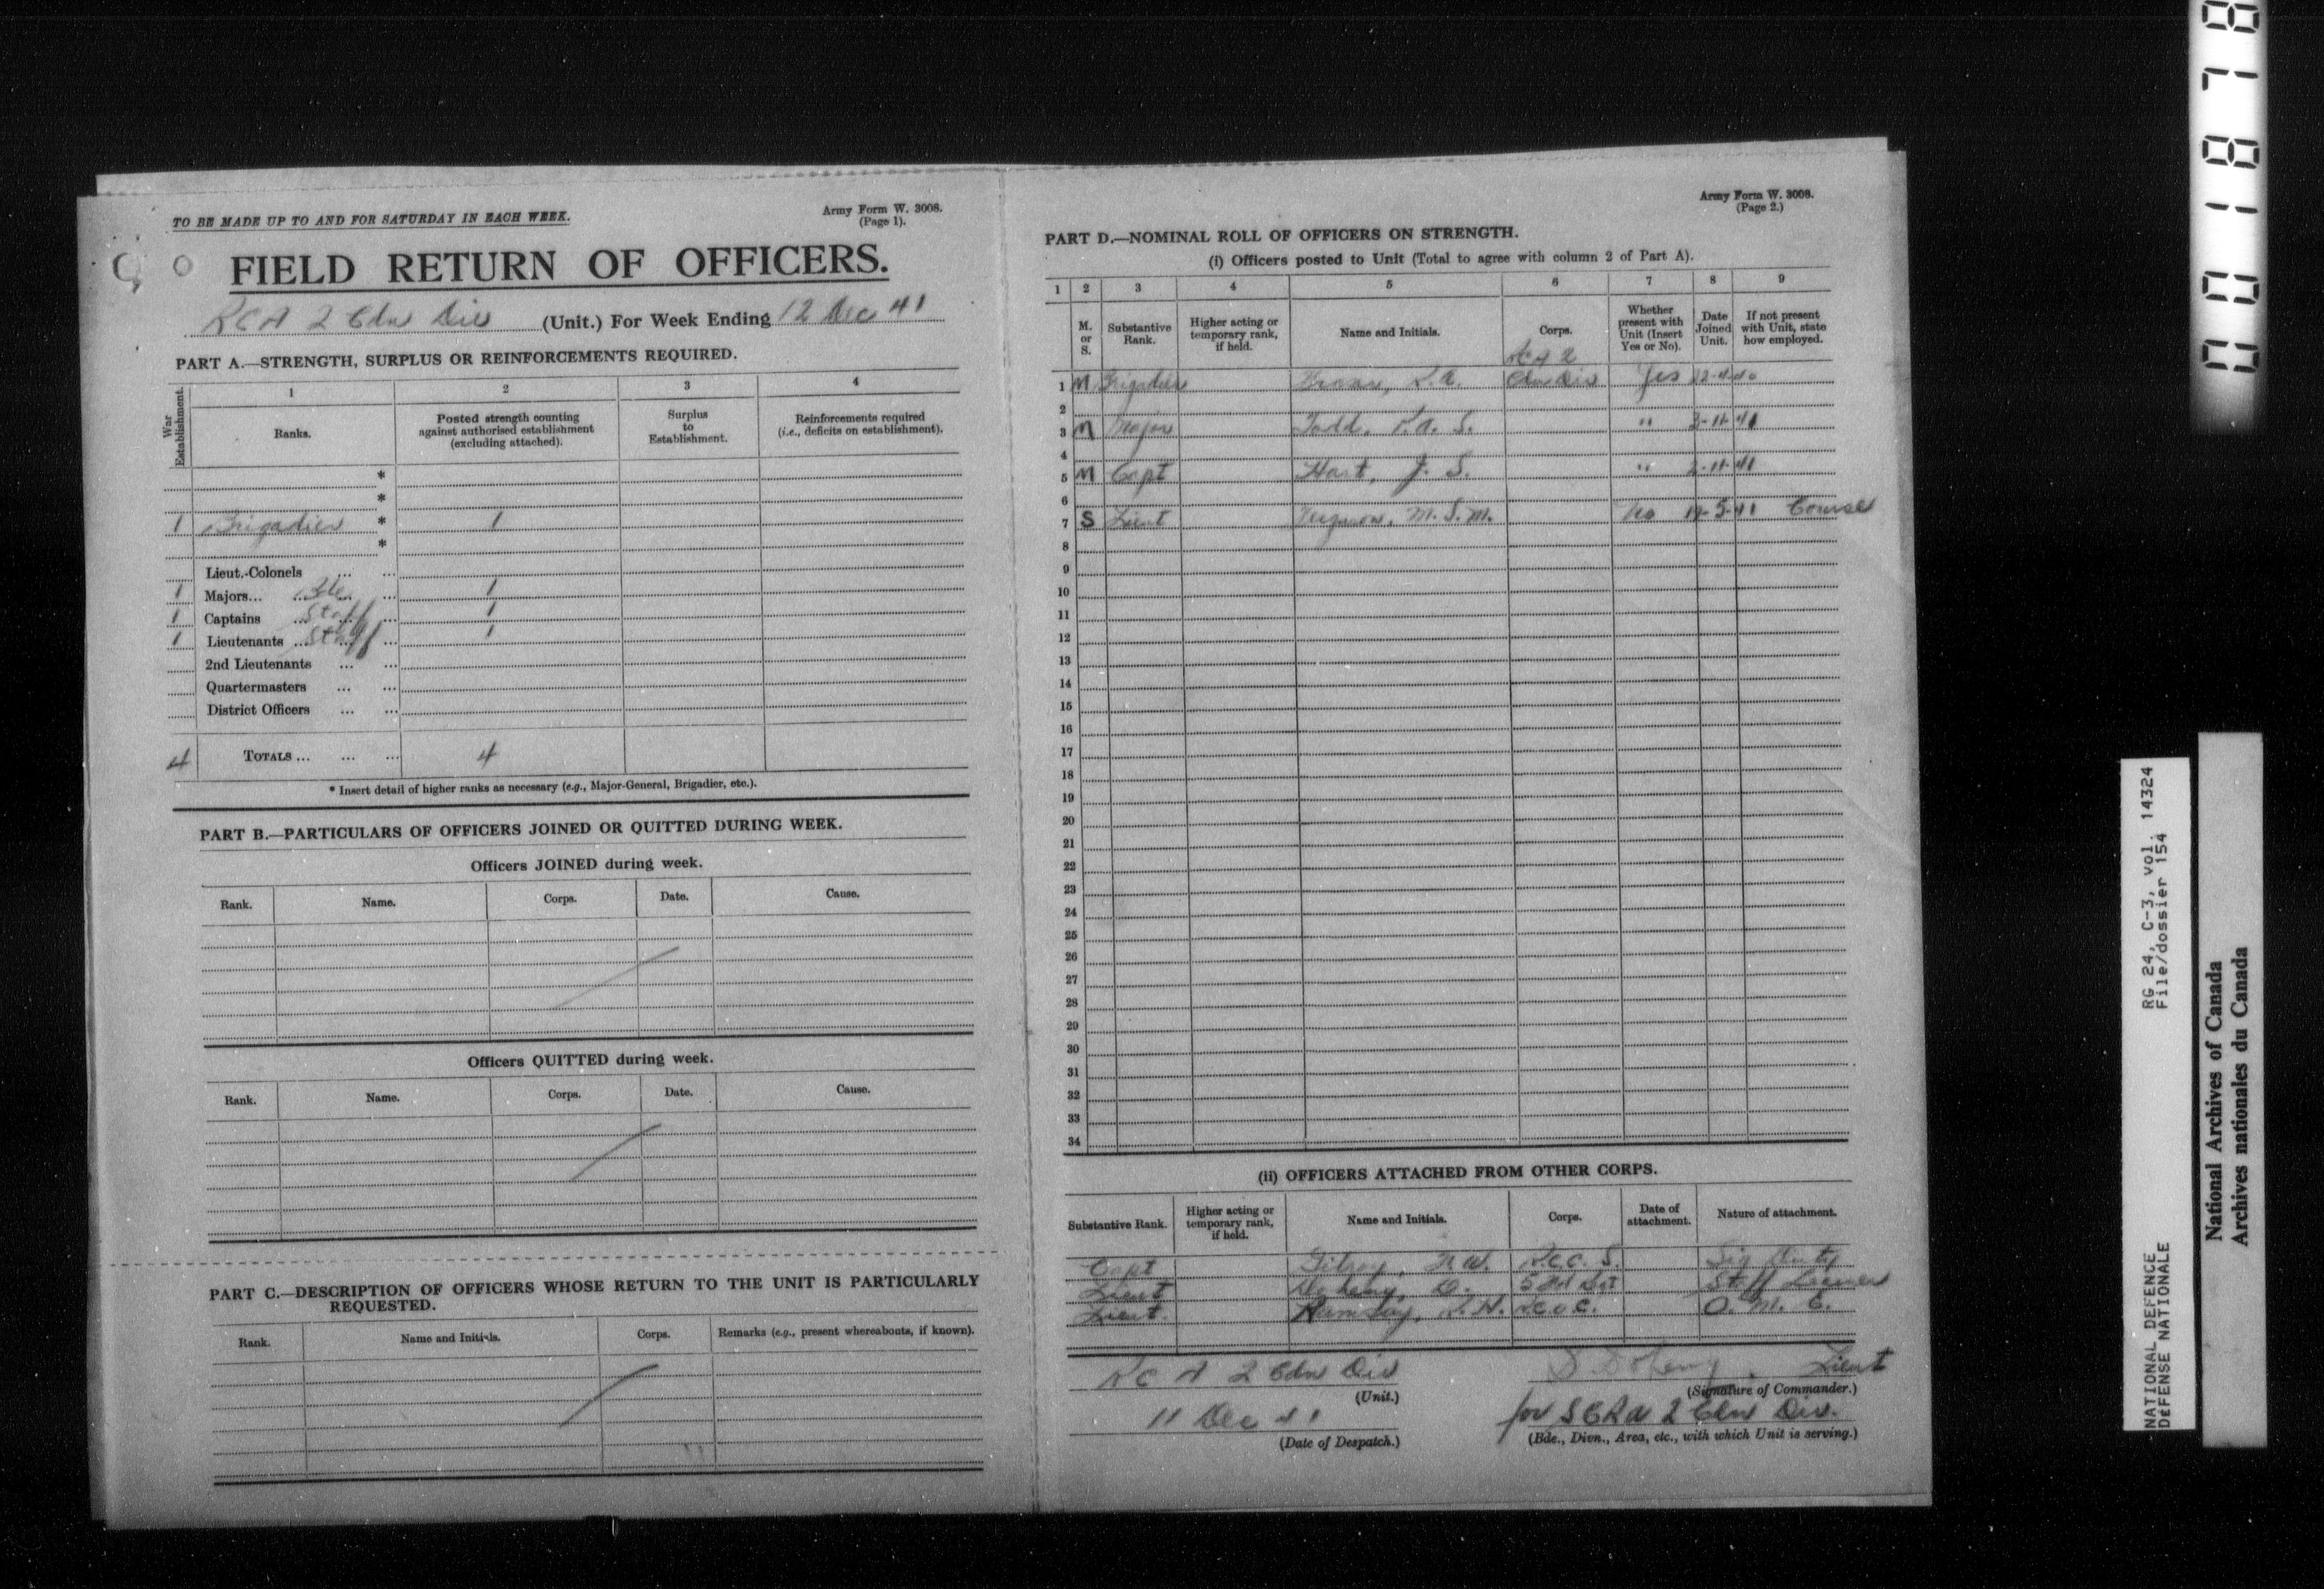 TO BE MADE UP TO AND FOR SATURDAY IN EACH WEEK.
Army Form W. 3008.
(Page 1).
FIELD RETURN OF OFFICERS.
RCA 2 Cdn Div (Unit.) For Week Ending 12 Dec 41
PART A.—STRENGTH, SURPLUS OR REINFORCEMENTS REQUIRED.
War Establishment.
1 2 3 4
Ranks.
Posted strength counting against authorised establishment (excluding attached).
Surplus to Establishment.
Reinforcements required (i.e., deficits on establishment).
*
*
1 Brigadier * 1
*
Lieut.-Colonels ... ...
1 Majors... ... ... 1
1 Captains ... Staff ... 1
1 Lieutenants ... Staff ... 1
2nd Lieutenants ... ...
Quartermasters ... ...
District Officers ... ...
4 TOTALS ... ... ... 4
* Insert detail of higher ranks as necessary (e.g., Major-General, Brigadier, etc.).
PART B.—PARTICULARS OF OFFICERS JOINED OR QUITTED DURING WEEK.
Officers JOINED during week.
Rank. Name. Corps. Date. Cause.
Officers QUITTED during week.
Rank. Name. Corps. Date. Cause.
PART C.—DESCRIPTION OF OFFICERS WHOSE RETURN TO THE UNIT IS PARTICULARLY
REQUESTED.
Rank. Name and Initials. Corps. Remarks (e.g., present whereabouts, if known).
Army Form W. 3008.
(Page 2.)
PART D.—NOMINAL ROLL OF OFFICERS ON STRENGTH.
(i) Officers posted to Unit (Total to agree with column 2 of Part A).
1 2 3 4 5 6 7 8 9
M. or S.
Substantive Rank.
Higher acting or temporary rank, if held.
Name and Initials.
Corps.
Whether present with Unit (Insert Yes or No).
Date Joined Unit.
If not present with Unit, state how employed.
RCA 2
1 M Brigadier Cdn Div Yes
2
3 M Major Todd, P.A.S. " 3-11-41
4
5 M Capt Hart, J. S. " 2-11-41
6
7 S Lieut Ferguson, M.S.M. No 19-5-41 Course
8
9
10
11
12
13
14
15
16
17
18
19
20
21
22
23
24
25
26
27
28
29
30
31
32
33
34
(ii) OFFICERS ATTACHED FROM OTHER CORPS.
Substantive Rank.
Higher acting or temporary rank, if held.
Name and Initials.
Corps.
Date of attachment.
Nature of attachment.
Capt Gilroy, N.W. R.C.C.S. Sig Duty
Lieut Staff Learner
Lieut. Ramsay, R.H. RCOC. O.M.E.
RCA 2 Cdn Div
(Unit.)
11 Dec 41
(Date of Despatch.)
Lieut
(Signature of Commander.)
for SCRA 2 Cdn Div.
(Bde., Divn., Area, etc., with which Unit is serving.)
001878
NATIONAL DEFENCE RG 24, C-3, vol. 14324
DEFENSE NATIONALE File/dossier 154
National Archives of Canada
Archives nationales du Canada